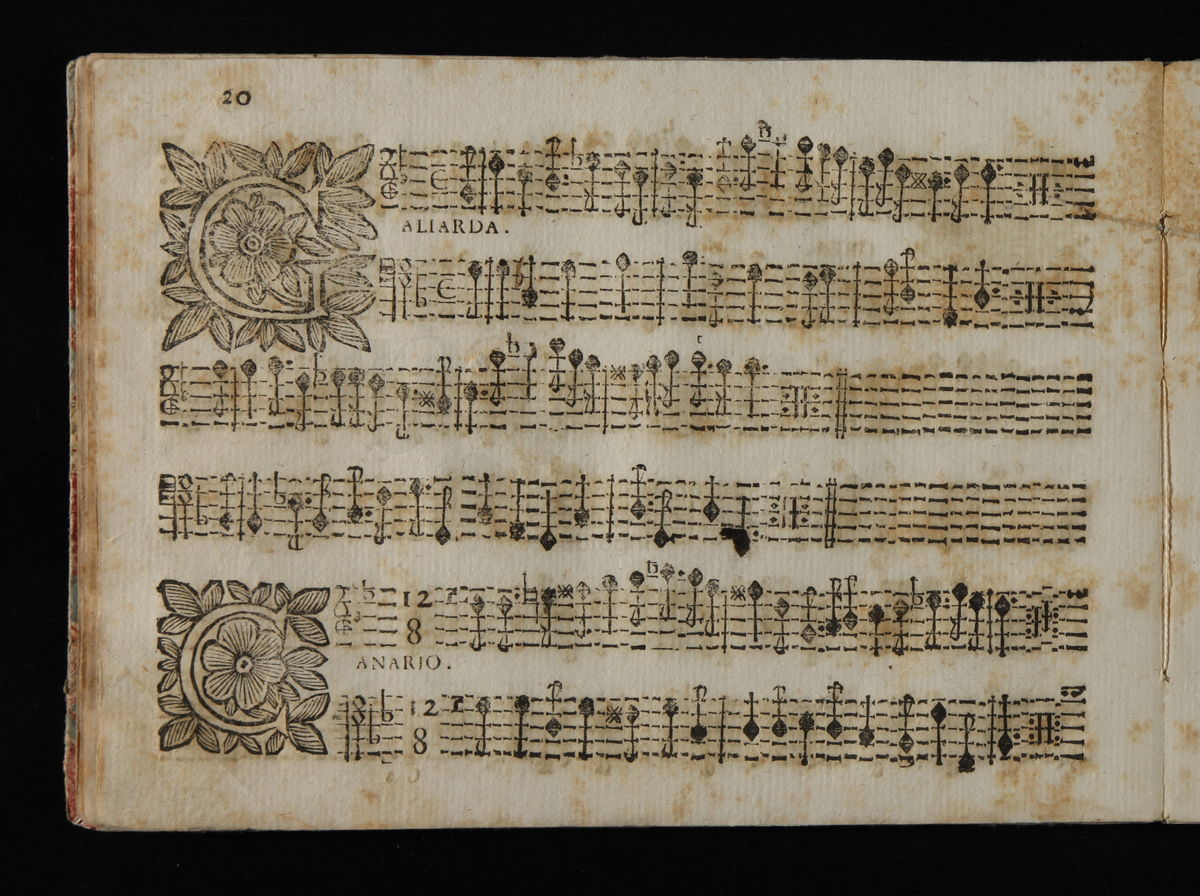 20
GALIARDA.
CANARIO.
12
8
12
8